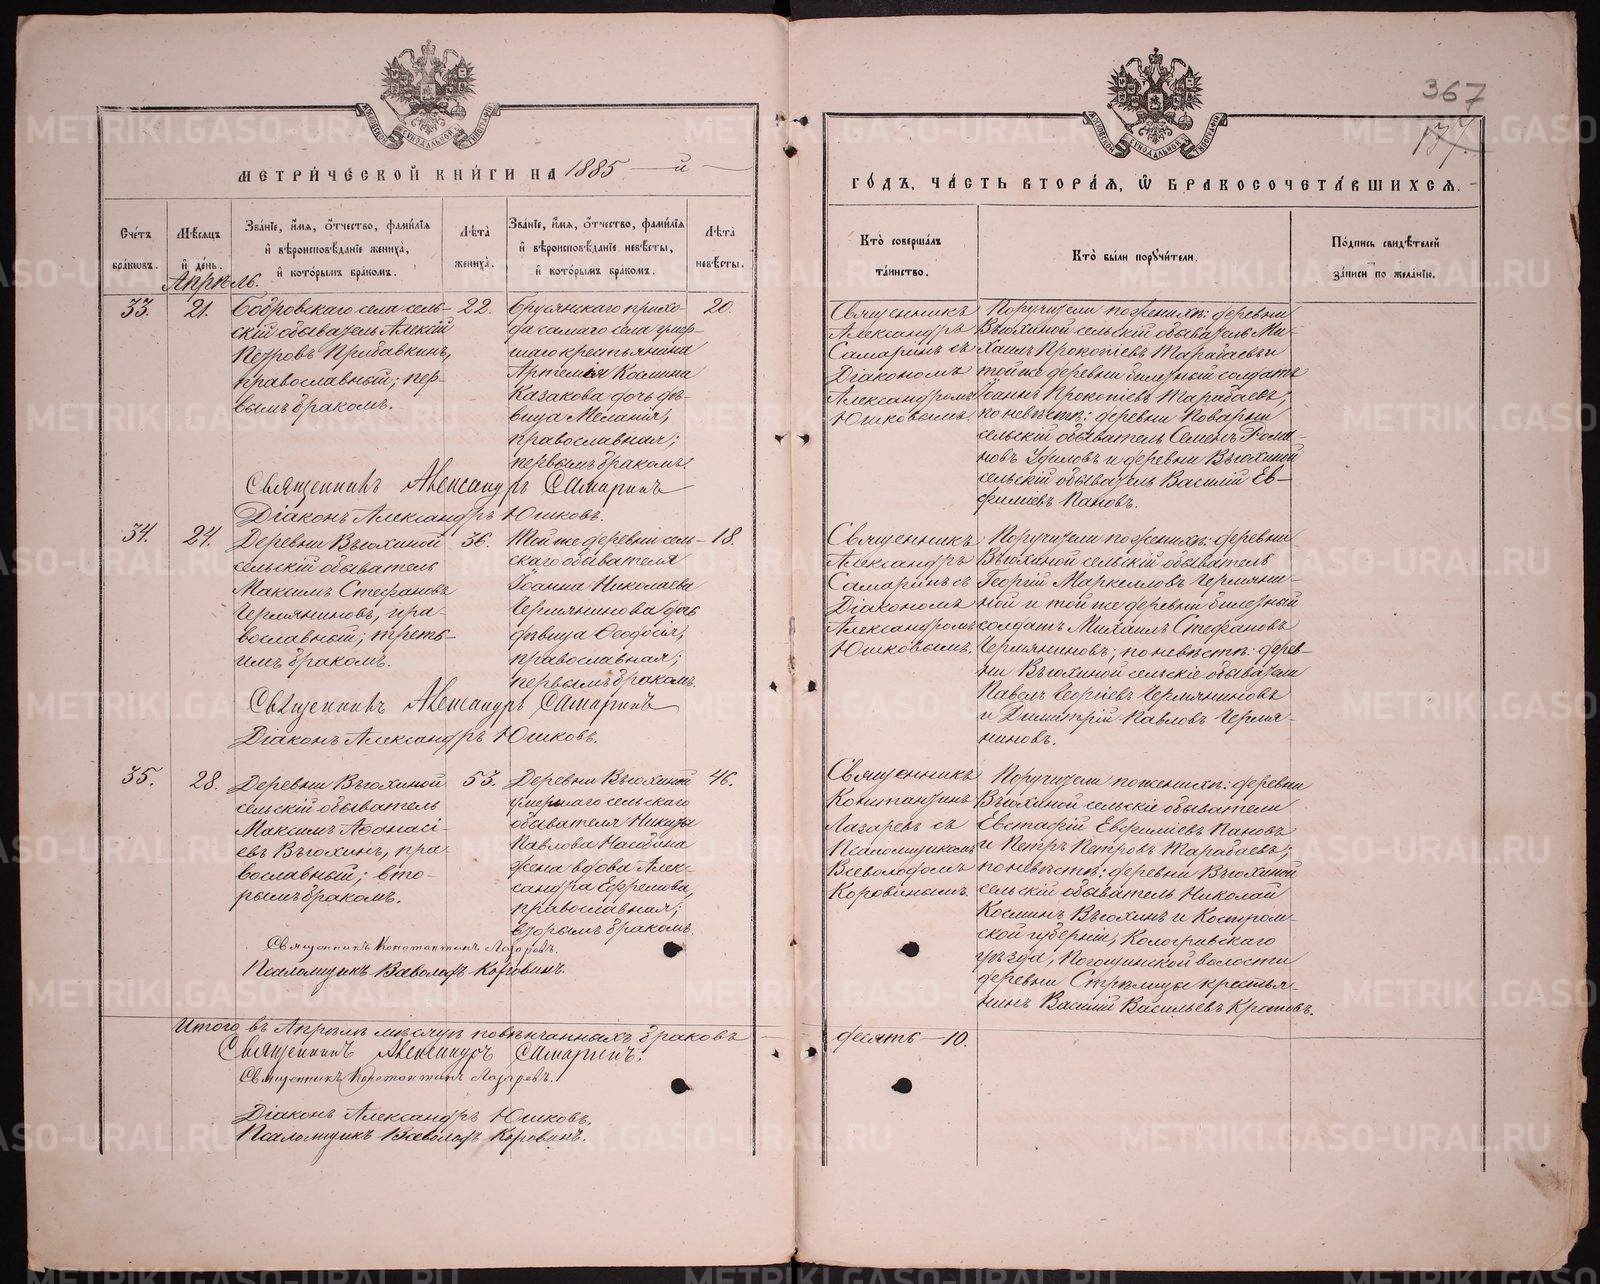 367
137
МЕТРИЧЕСКОЙ КНИГИ НА 1885 й
ГОДЪ, ЧАСТЬ ВТОРАЯ, Ѿ БРАКОСОЧЕТАВШИХСЯ.
Счетъ браковъ.
Мѣсяцъ и день.
Званіе, имя, отчество, фамилія и вѣроисповѣданіе жениха, и которымъ бракомъ.
Лѣта жениха.
Званіе, имя, отчество, фамилія и вѣроисповѣданіе невѣсты, и которымъ бракомъ.
Лѣта невѣсты.
Кто совершалъ таинство.
Кто были поручители.
Подпись свидѣтелей записи по желанію.
Апрѣль.
33.
21.
Бобровскаго села сель-
скій обыватель Алексій
Петровъ Прибавкинъ,
православный; пер-
вымъ бракомъ.
22.
Бруянскаго прихо-
да самаго села умер-
шаго крестьянина
Артемія Космина
Казакова дочь дѣ-
вица Меланія,
православная;
первымъ бракомъ.
20.
Священникъ
Александръ
Самаринъ съ
Діакономъ
Александромъ
Юшковымъ.
Поручители по женихѣ: деревни
Вьюхиной сельскій обыватель Ми-
хаилъ Прокопіевъ Тарабаевъ и
той же деревни билетный солдатъ
Іоаннъ Прокопіевъ Тарабаевъ,
по невѣстѣ: деревни Поварни
сельскій обыватель Семенъ Рома-
новъ Удиловъ и деревни Вьюхиной
сельскій обыватель Василій Ев-
фиміевъ Пановъ.
Священникъ Александръ Самаринъ
Діаконъ Александръ Юшковъ.
34.
24.
Деревни Вьюхиной
сельскій обыватель
Максимъ Стефановъ
Чермяниновъ, пра-
вославный; треть-
имъ бракомъ.
36.
Той же деревни сель-
скаго обывателя
Іоанна Николаева
Чермянинова дочь
дѣвица Ѳеодосія,
православная;
первымъ бракомъ.
18.
Священникъ
Александръ
Самаринъ съ
Діакономъ
Александромъ
Юшковымъ.
Поручители по женихѣ: деревни
Вьюхиной сельскій обыватель
Георгій Маркелловъ Чермяни-
ной и той же деревни билетный
солдатъ Михаилъ Стефановъ
Чермяниновъ; по невѣстѣ: дерев-
ни Вьюхиной сельскіе обыватели
Павелъ Георгіевъ Чермяниновъ
и Димитрій Павловъ Чермя-
ниновъ.
Священникъ Александръ Самаринъ
Діаконъ Александръ Юшковъ.
35.
28.
Деревни Вьюхиной
сельскій обыватель
Максимъ Аѳанасі-
евъ Вьюхинъ, пра-
вославный; вто-
рымъ бракомъ.
53.
Деревни Вьюхиной
умершаго сельскаго
обывателя Никиты
Павлова
жена вдова Алек-
сандра Ефремова,
православная;
вторымъ бракомъ.
46.
Священникъ
Константинъ
Лазаревъ съ
Псаломщикомъ
Всеволодомъ
Коровинымъ.
Поручители по женихѣ: деревни
Вьюхиной сельскіе обыватели
Евстафій Евфиміевъ Пановъ
и Петръ Петровъ Тарабаевъ;
по невѣстѣ: деревни Вьюхиной
сельскій обыватель Николай
Косминъ Вьюхинъ и Костром-
ской губерніи, Кологривскаго
уѣзда, волости
деревни Стрѣлицы крестья-
нинъ Василій Васильевъ Кротовъ.
Священникъ Константинъ Лазаревъ.
Псаломщикъ Всеволодъ Коровинъ.
Итого въ Апрѣлѣ мѣсяцѣ повѣнчанныхъ браковъ
десять — 10.
Священникъ Александръ Самаринъ.
Священникъ Константинъ Лазаревъ.
Діаконъ Александръ Юшковъ.
Псаломщикъ Всеволодъ Коровинъ.
METRIKI.GASO-URAL.RU